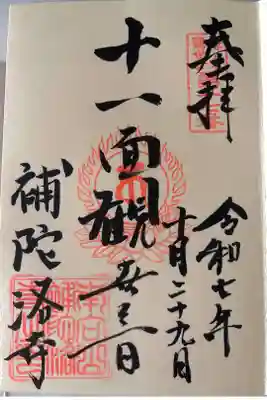 奉拝
令和七年
十月二十九日
十一面観世音
補陀洛寺